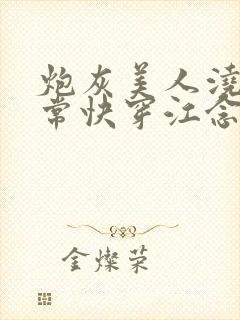 炮灰美人浇
常快穿江念
金燦荣